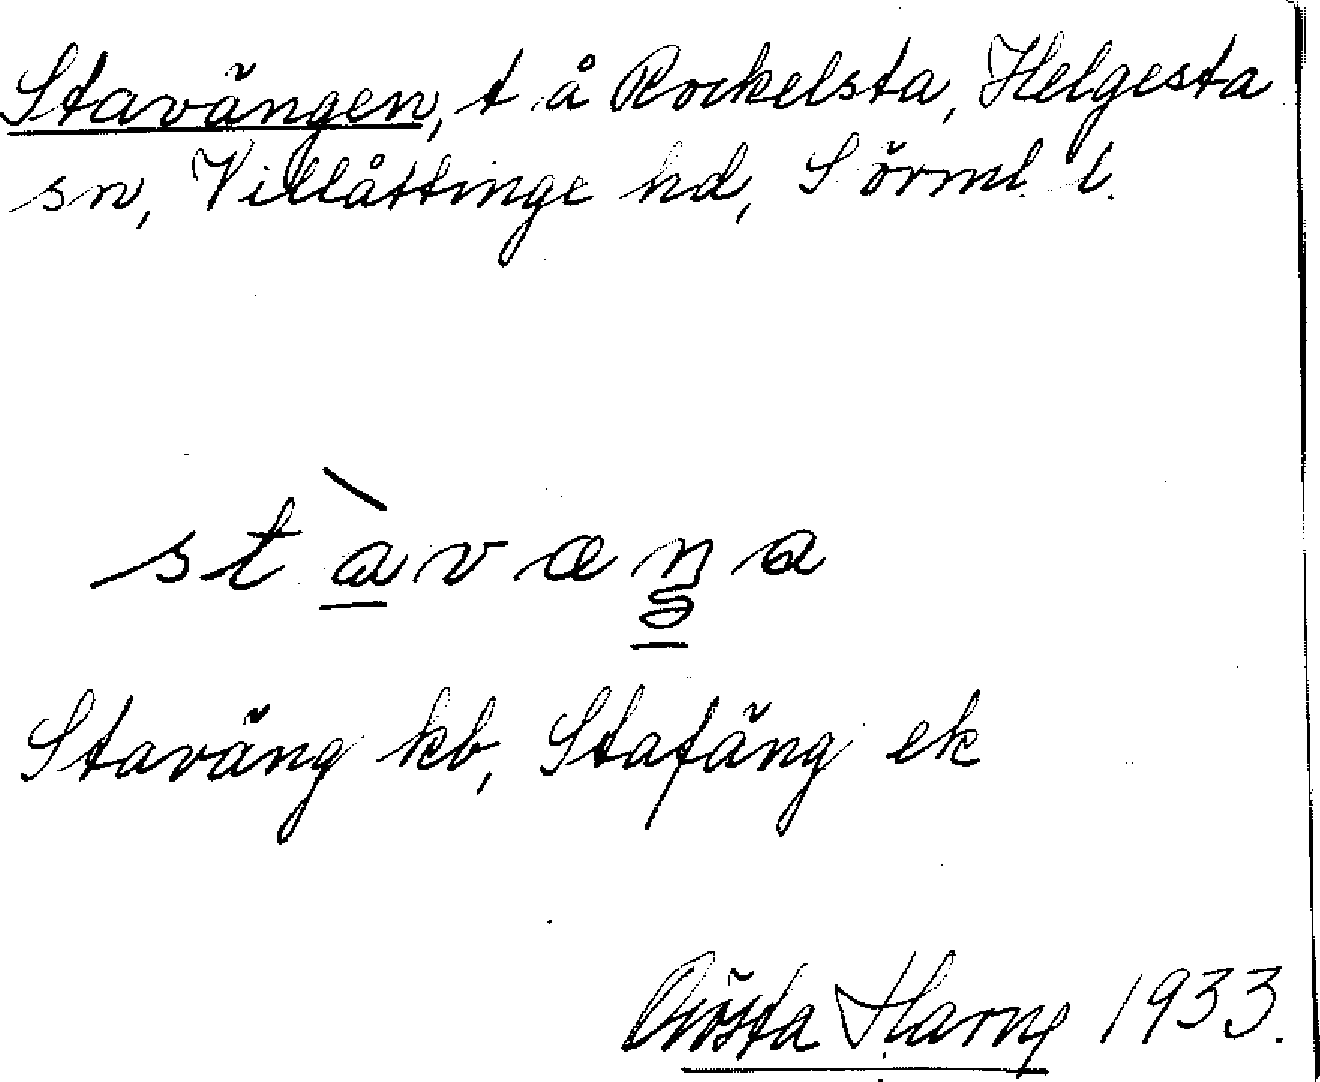 Stavängen, t å Rockelsta, Helgesta
sn, Villåttinge hd, Sörml. l.
stàvæŋa
Staväng kb, Stafäng ek
Gösta Harng 1933.